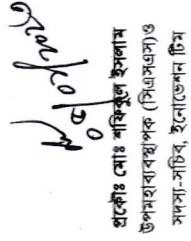 প্রকৌঃ মোঃ শফিকুল ইসলাম
উপমহাব্যবস্থাপক (সিএসএস)ও
সদস্য-সচিব, ইনোভেশন টিম